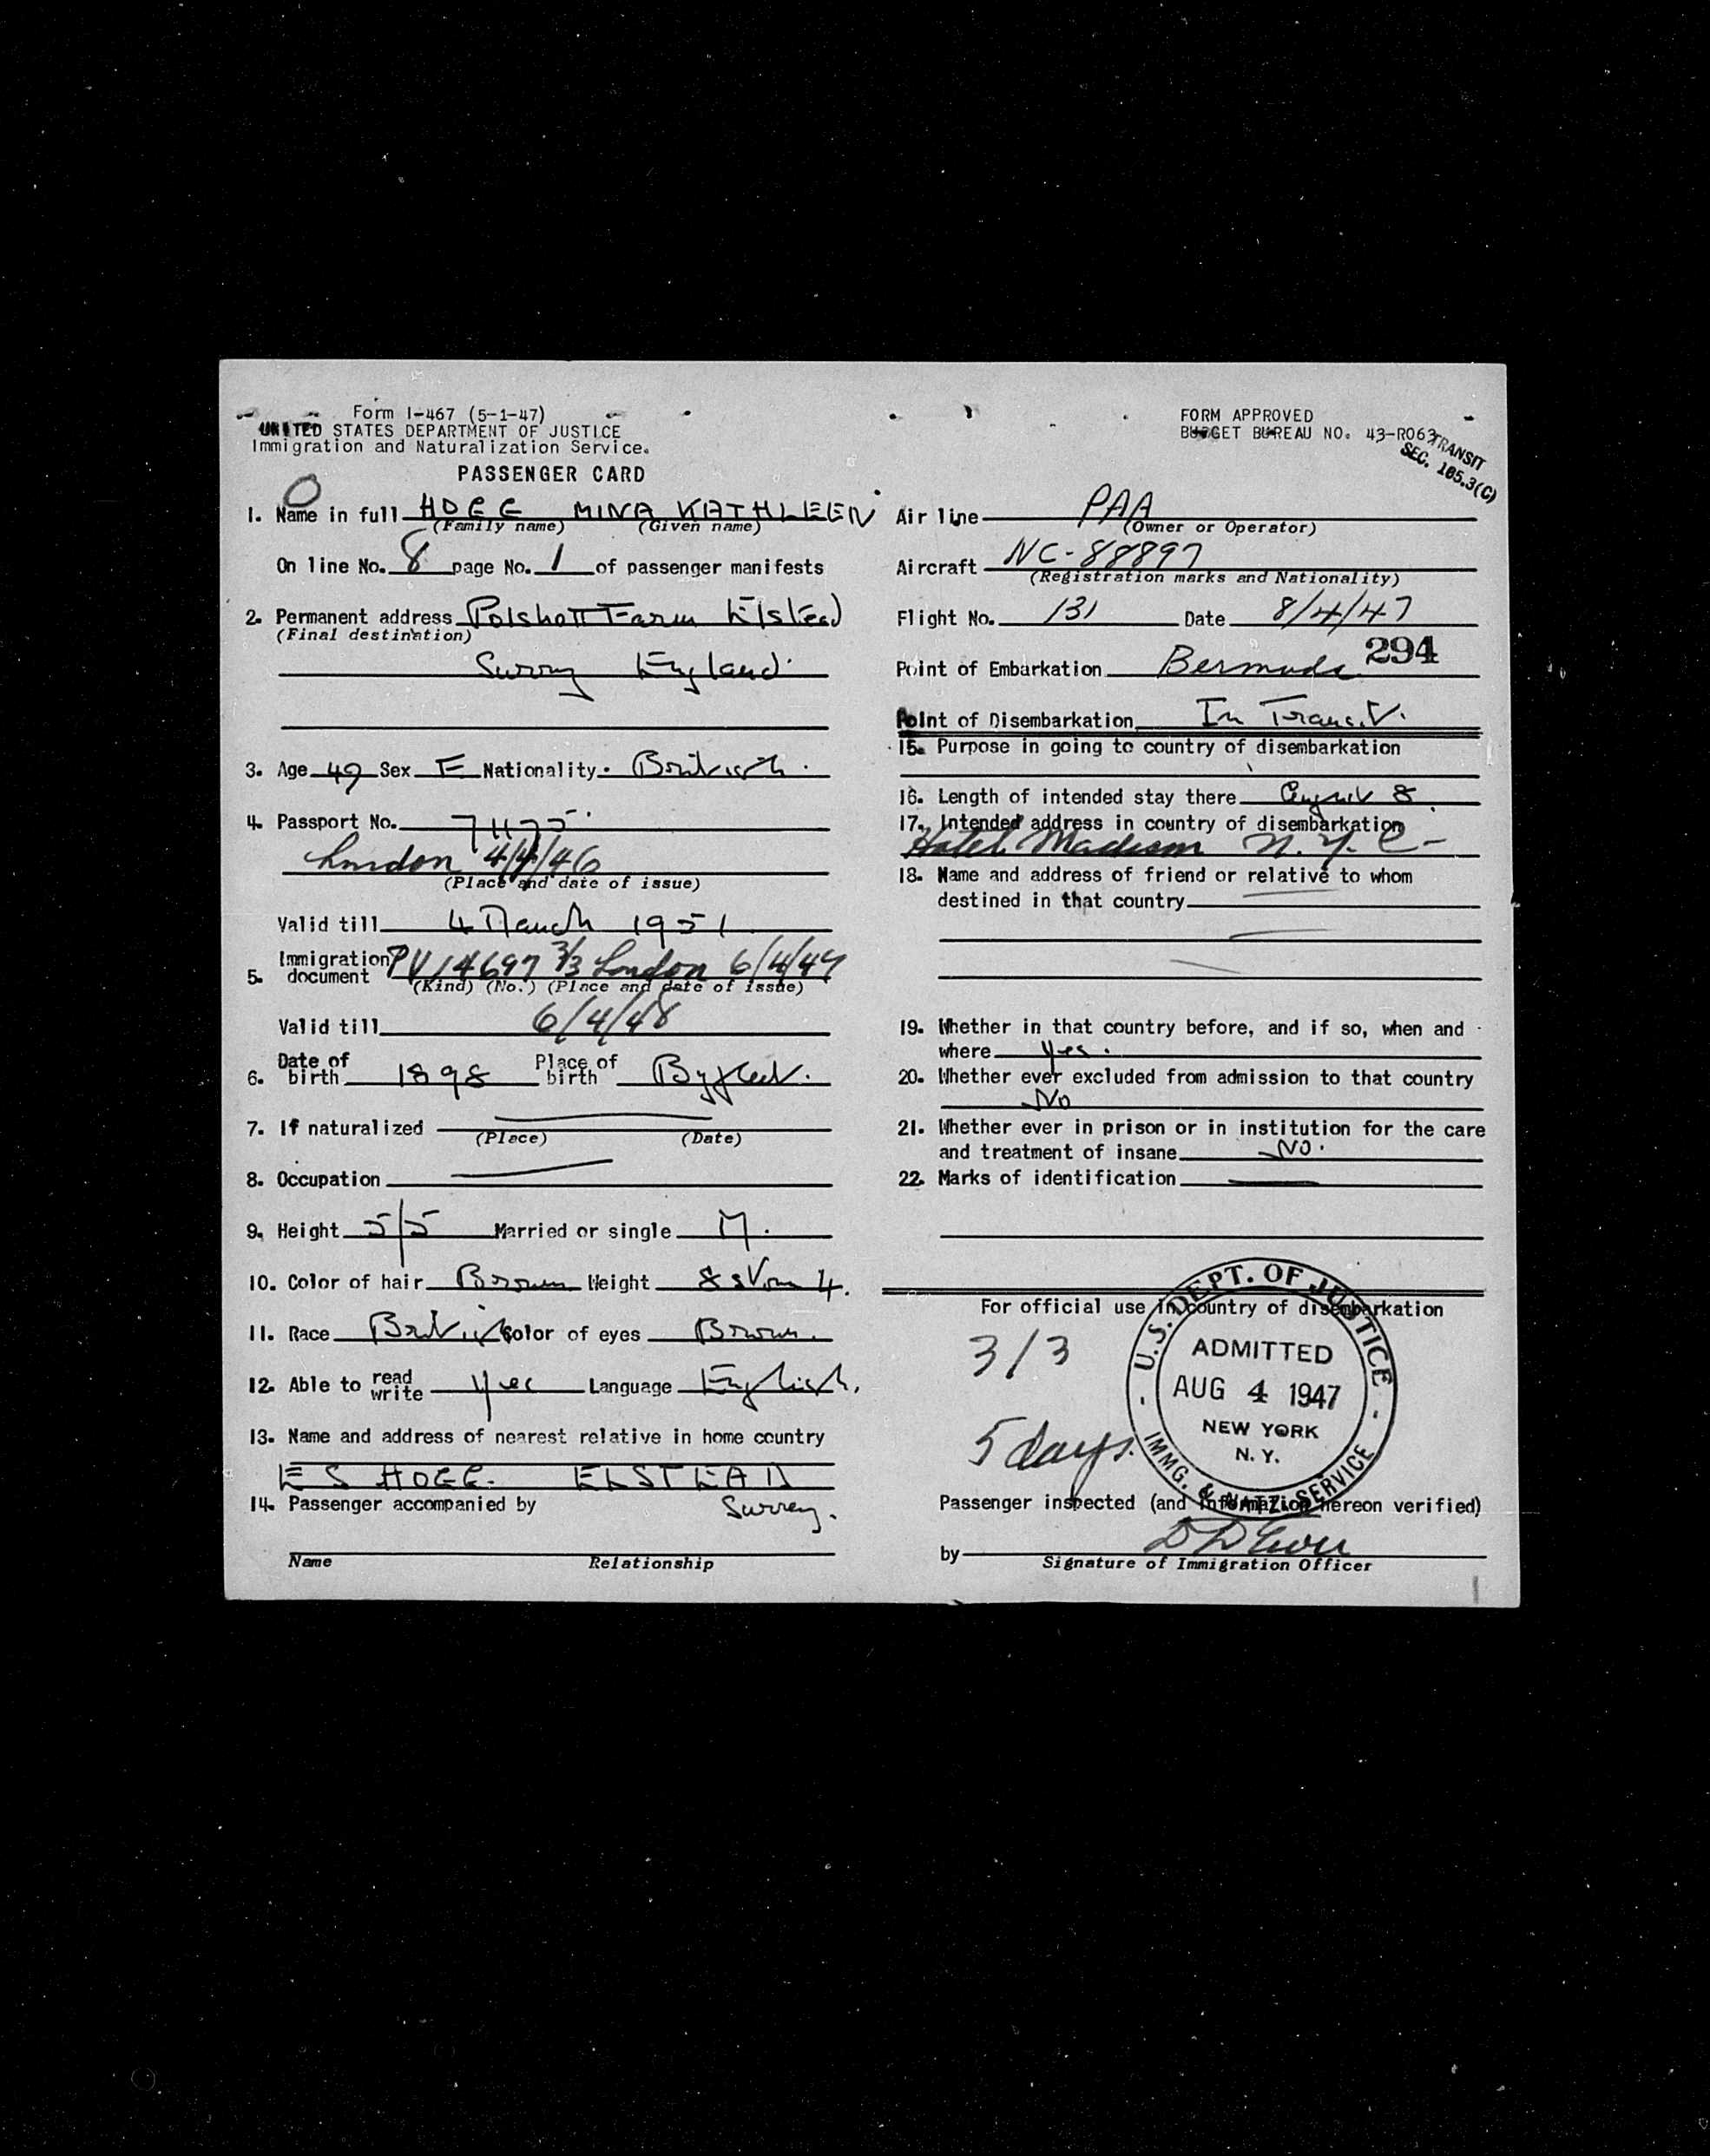 Form I-467 (5-1-47)
UNITED STATES DEPARTMENT OF JUSTICE
Immigration and Naturalization Service.
PASSENGER CARD
1. Name in full HOGG MINA KATHLEEN
(Family name) (Given name)
On line No. 8 page No. 1 of passenger manifests
2. Permanent address Polshott Farm Elstead
(Final destination)
Surrey England.
3. Age 49 Sex F Nationality British.
4. Passport No. 71175
London 4/4/46
(Place and date of issue)
Valid till 4 March 1951
5. Immigration document PV 14697 3/3 London 6/4/47
(Kind) (No.) (Place and date of issue)
Valid till 6/4/48
6. Date of birth 1898 Place of birth Byfleet.
7. If naturalized
(Place) (Date)
8. Occupation
9. Height 5/5 Married or single M.
10. Color of hair Brown Weight 8 stone 4.
11. Race British Color of eyes Brown.
12. Able to read write yes Language English.
13. Name and address of nearest relative in home country
E S HOGG. ELSTEAD
Surrey.
14. Passenger accompanied by
Name Relationship
FORM APPROVED
BUDGET BUREAU NO. 43-R063
TRANSIT
SEC. 105.3(C)
Air line PAA
(Owner or Operator)
Aircraft NC-88897
(Registration marks and Nationality)
Flight No. 131 Date 8/4/47
294
Point of Embarkation Bermuda
Point of Disembarkation In Transit.
15. Purpose in going to country of disembarkation
16. Length of intended stay there August 8.
17. Intended address in country of disembarkation
Hotel Madison N.Y.C-
18. Name and address of friend or relative to whom
destined in that country
19. Whether in that country before, and if so, when and
where yes.
20. Whether ever excluded from admission to that country
No
21. Whether ever in prison or in institution for the care
and treatment of insane No.
22. Marks of identification
For official use in country of disembarkation
3/3
5 days.
U.S. DEPT. OF JUSTICE
ADMITTED
AUG 4 1947
NEW YORK
N. Y.
IMMG. & NATZ. SERVICE
Passenger inspected (and information hereon verified)
by
Signature of Immigration Officer